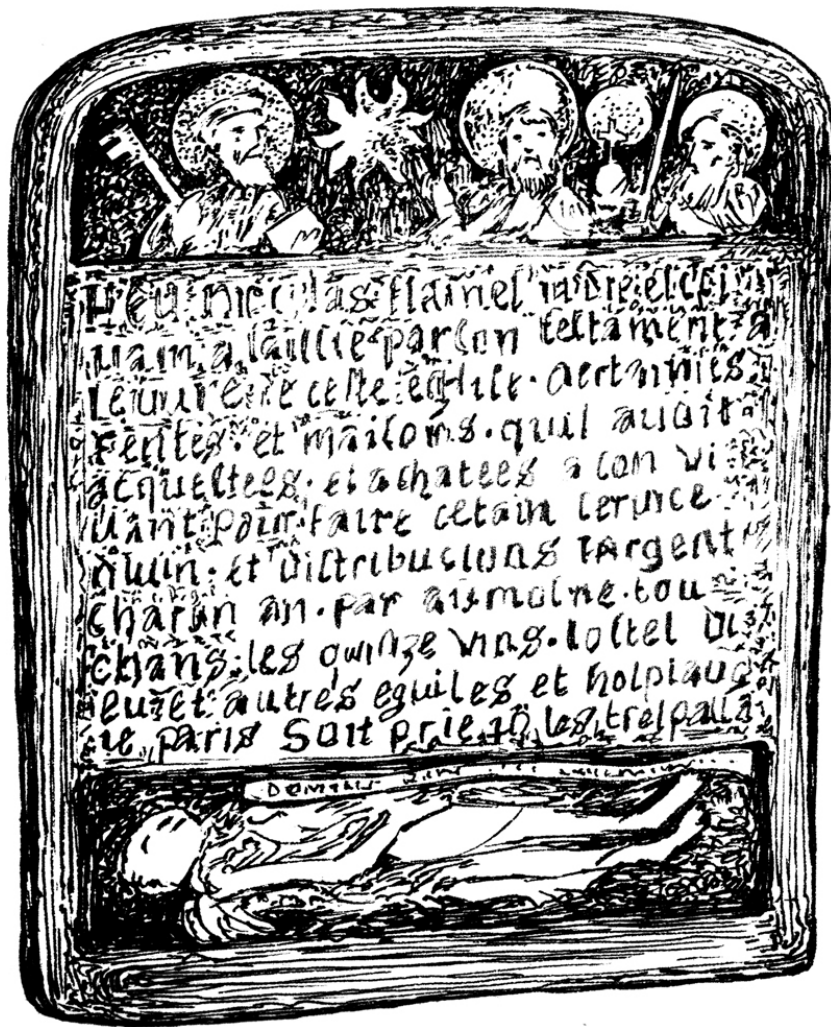 Feu nicolas flamel iadis escri
uain a laissie par son testament a
leuure de ceste eglise. certaines
rentes. et maisons. quil auoit
acquestees. et achatees a son vi
uant. pour faire certain seruice
diuin. et distribucions dargent
chascun an. par aumosne. tou
chans. les quinze vins. lostel di
eu. et autres eglises et hospitaux
de paris Soit prie les trespassa
Domine